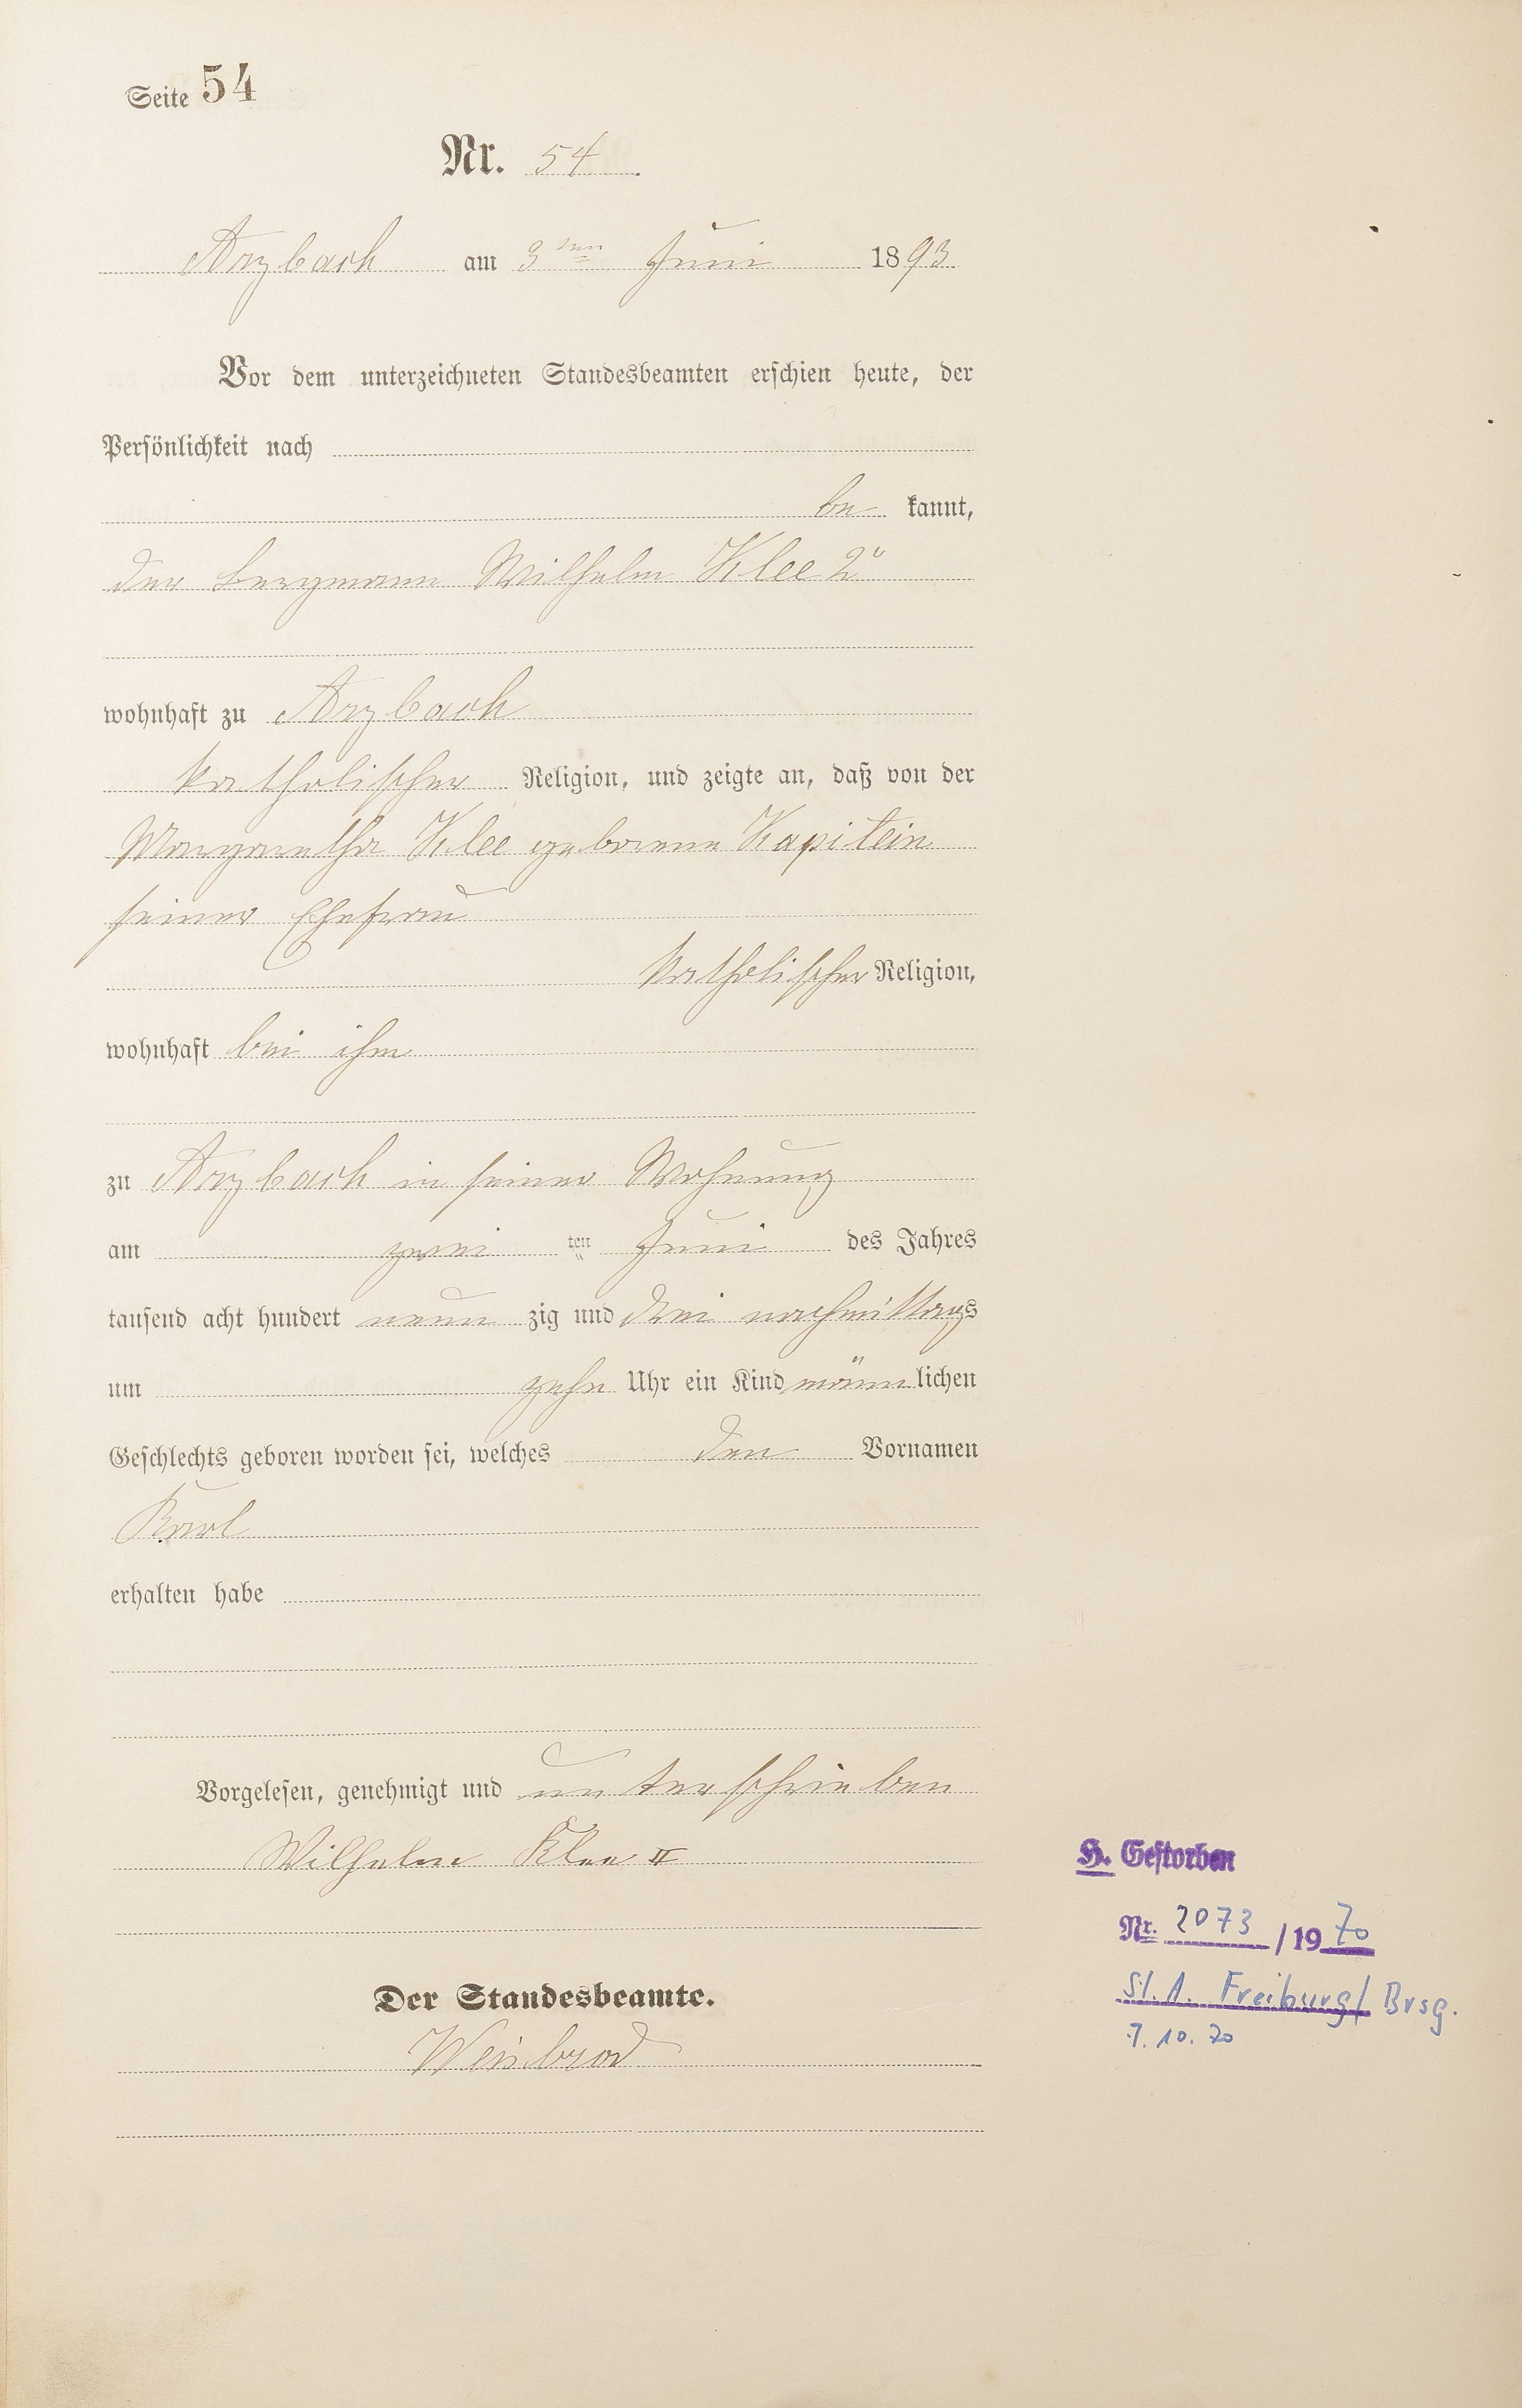 Seite 54
Nr. 54
Arzbach am 3ten Juni 1893
Vor dem unterzeichneten Standesbeamten erschien heute, der
Persönlichkeit nach
be kannt,
der Bergmann Wilhelm Klee 2r
wohnhaft zu Arzbach
katholischer Religion, und zeigte an, daß von der
Margaretha Klee geborene Kapitein
seiner Ehefrau
katholischer Religion,
wohnhaft bei ihm
zu Arzbach in seiner Wohnung
am zwei ten Juni des Jahres
tausend acht hundert neun zig und drei nachmittags
um zehn Uhr ein Kind männlichen
Geschlechts geboren worden sei, welches den Vornamen
Karl
erhalten habe
Vorgelesen, genehmigt und unterschrieben
Wilhelm Klee II
Der Standesbeamte.
Weinbrod
H. Gestorben
Nr. 2073 / 1970
St. A. Freiburg/ Brsg.
7. 10. 70